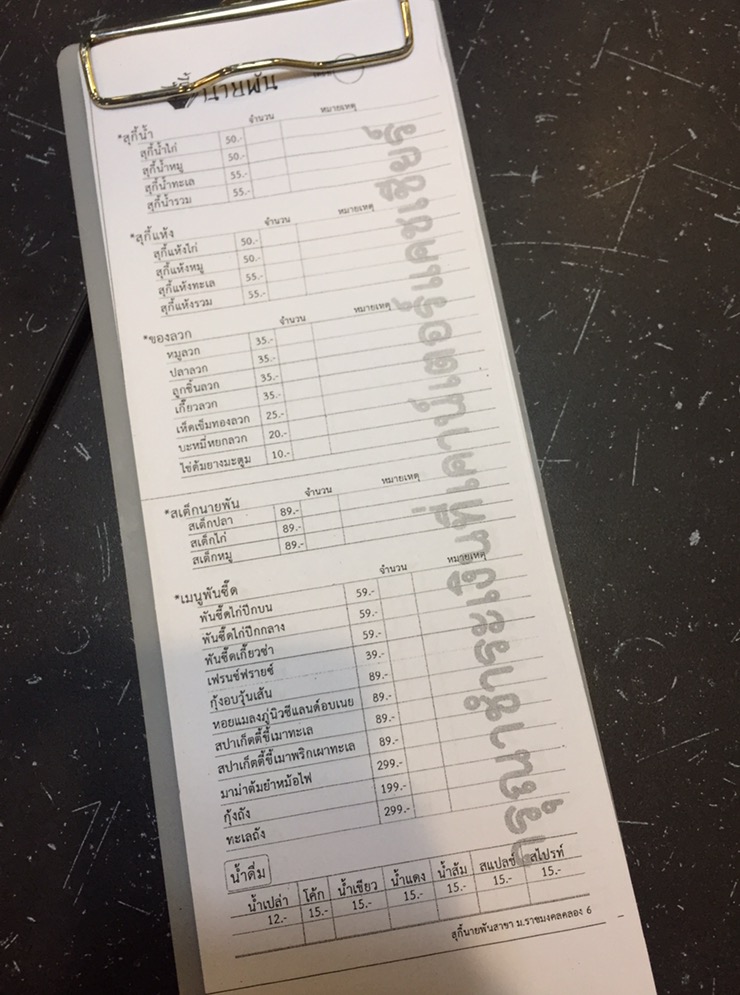 นายพัน
*สุกี้น้ำ จำนวน หมายเหตุ
สุกี้น้ำไก่ 50.-
สุกี้น้ำหมู 50.-
สุกี้น้ำทะเล 55.-
สุกี้น้ำรวม 55.-
*สุกี้แห้ง จำนวน หมายเหตุ
สุกี้แห้งไก่ 50.-
สุกี้แห้งหมู 50.-
สุกี้แห้งทะเล 55.-
สุกี้แห้งรวม 55.-
*ของลวก จำนวน หมายเหตุ
หมูลวก 35.-
ปลาลวก 35.-
ลูกชิ้นลวก 35.-
เกี๊ยวลวก 35.-
เห็ดเข็มทองลวก 25.-
บะหมี่หยกลวก 20.-
ไข่ต้มยางมะตูม 10.-
*สเต็กนายพัน จำนวน หมายเหตุ
สเต็กปลา 89.-
สเต็กไก่ 89.-
สเต็กหมู 89.-
*เมนูพันซี๊ด จำนวน หมายเหตุ
พันซี๊ดไก่ปีกบน 59.-
พันซี๊ดไก่ปีกกลาง 59.-
พันซี๊ดเกี๊ยวซ่า 59.-
เฟรนช์ฟรายซ์ 39.-
กุ้งอบวุ้นเส้น 89.-
หอยแมลงภู่นิวซีแลนด์อบเนย 89.-
สปาเก็ตตี้ขี้เมาทะเล 89.-
สปาเก็ตตี้ขี้เมาพริกเผาทะเล 89.-
มาม่าต้มยำหม้อไฟ 299.-
กุ้งถัง 199.-
ทะเลถัง 299.-
น้ำดื่ม
น้ำเปล่า โค้ก น้ำเขียว น้ำแดง น้ำส้ม สแปลช สไปรท์
12.- 15.- 15.- 15.- 15.- 15.- 15.-
สุกี้นายพันสาขา ม.ราชมงคลคลอง 6
รุ้นชำระเงินที่เคาน์เตอร์แคชเชียร์